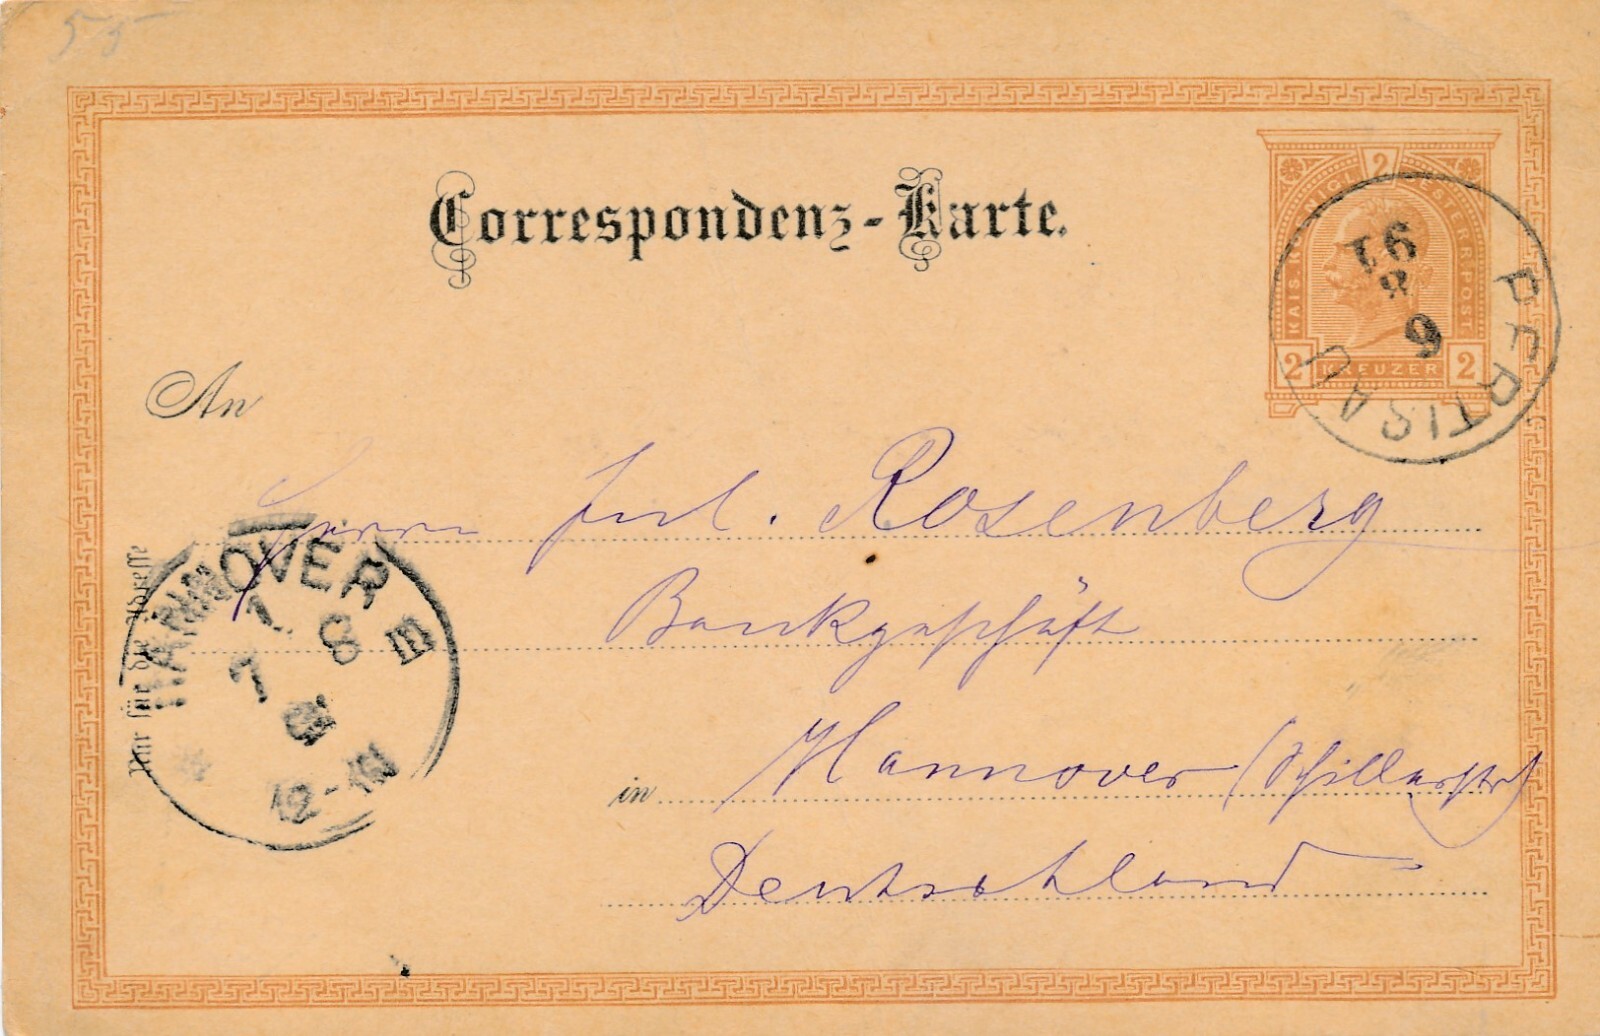 55
Correspondenz-Karte.
KAIS. KÖNIGL. 2 OESTERR. POST
2 KREUZER 2
PERTISAU
6
8
91
An
Herrn Jul. Rosenberg
Bankgeschäft
in Hannover (Schillerstr)
Deutschland
Nur für die Adresse
HANNOVER
1.
7 8
12-